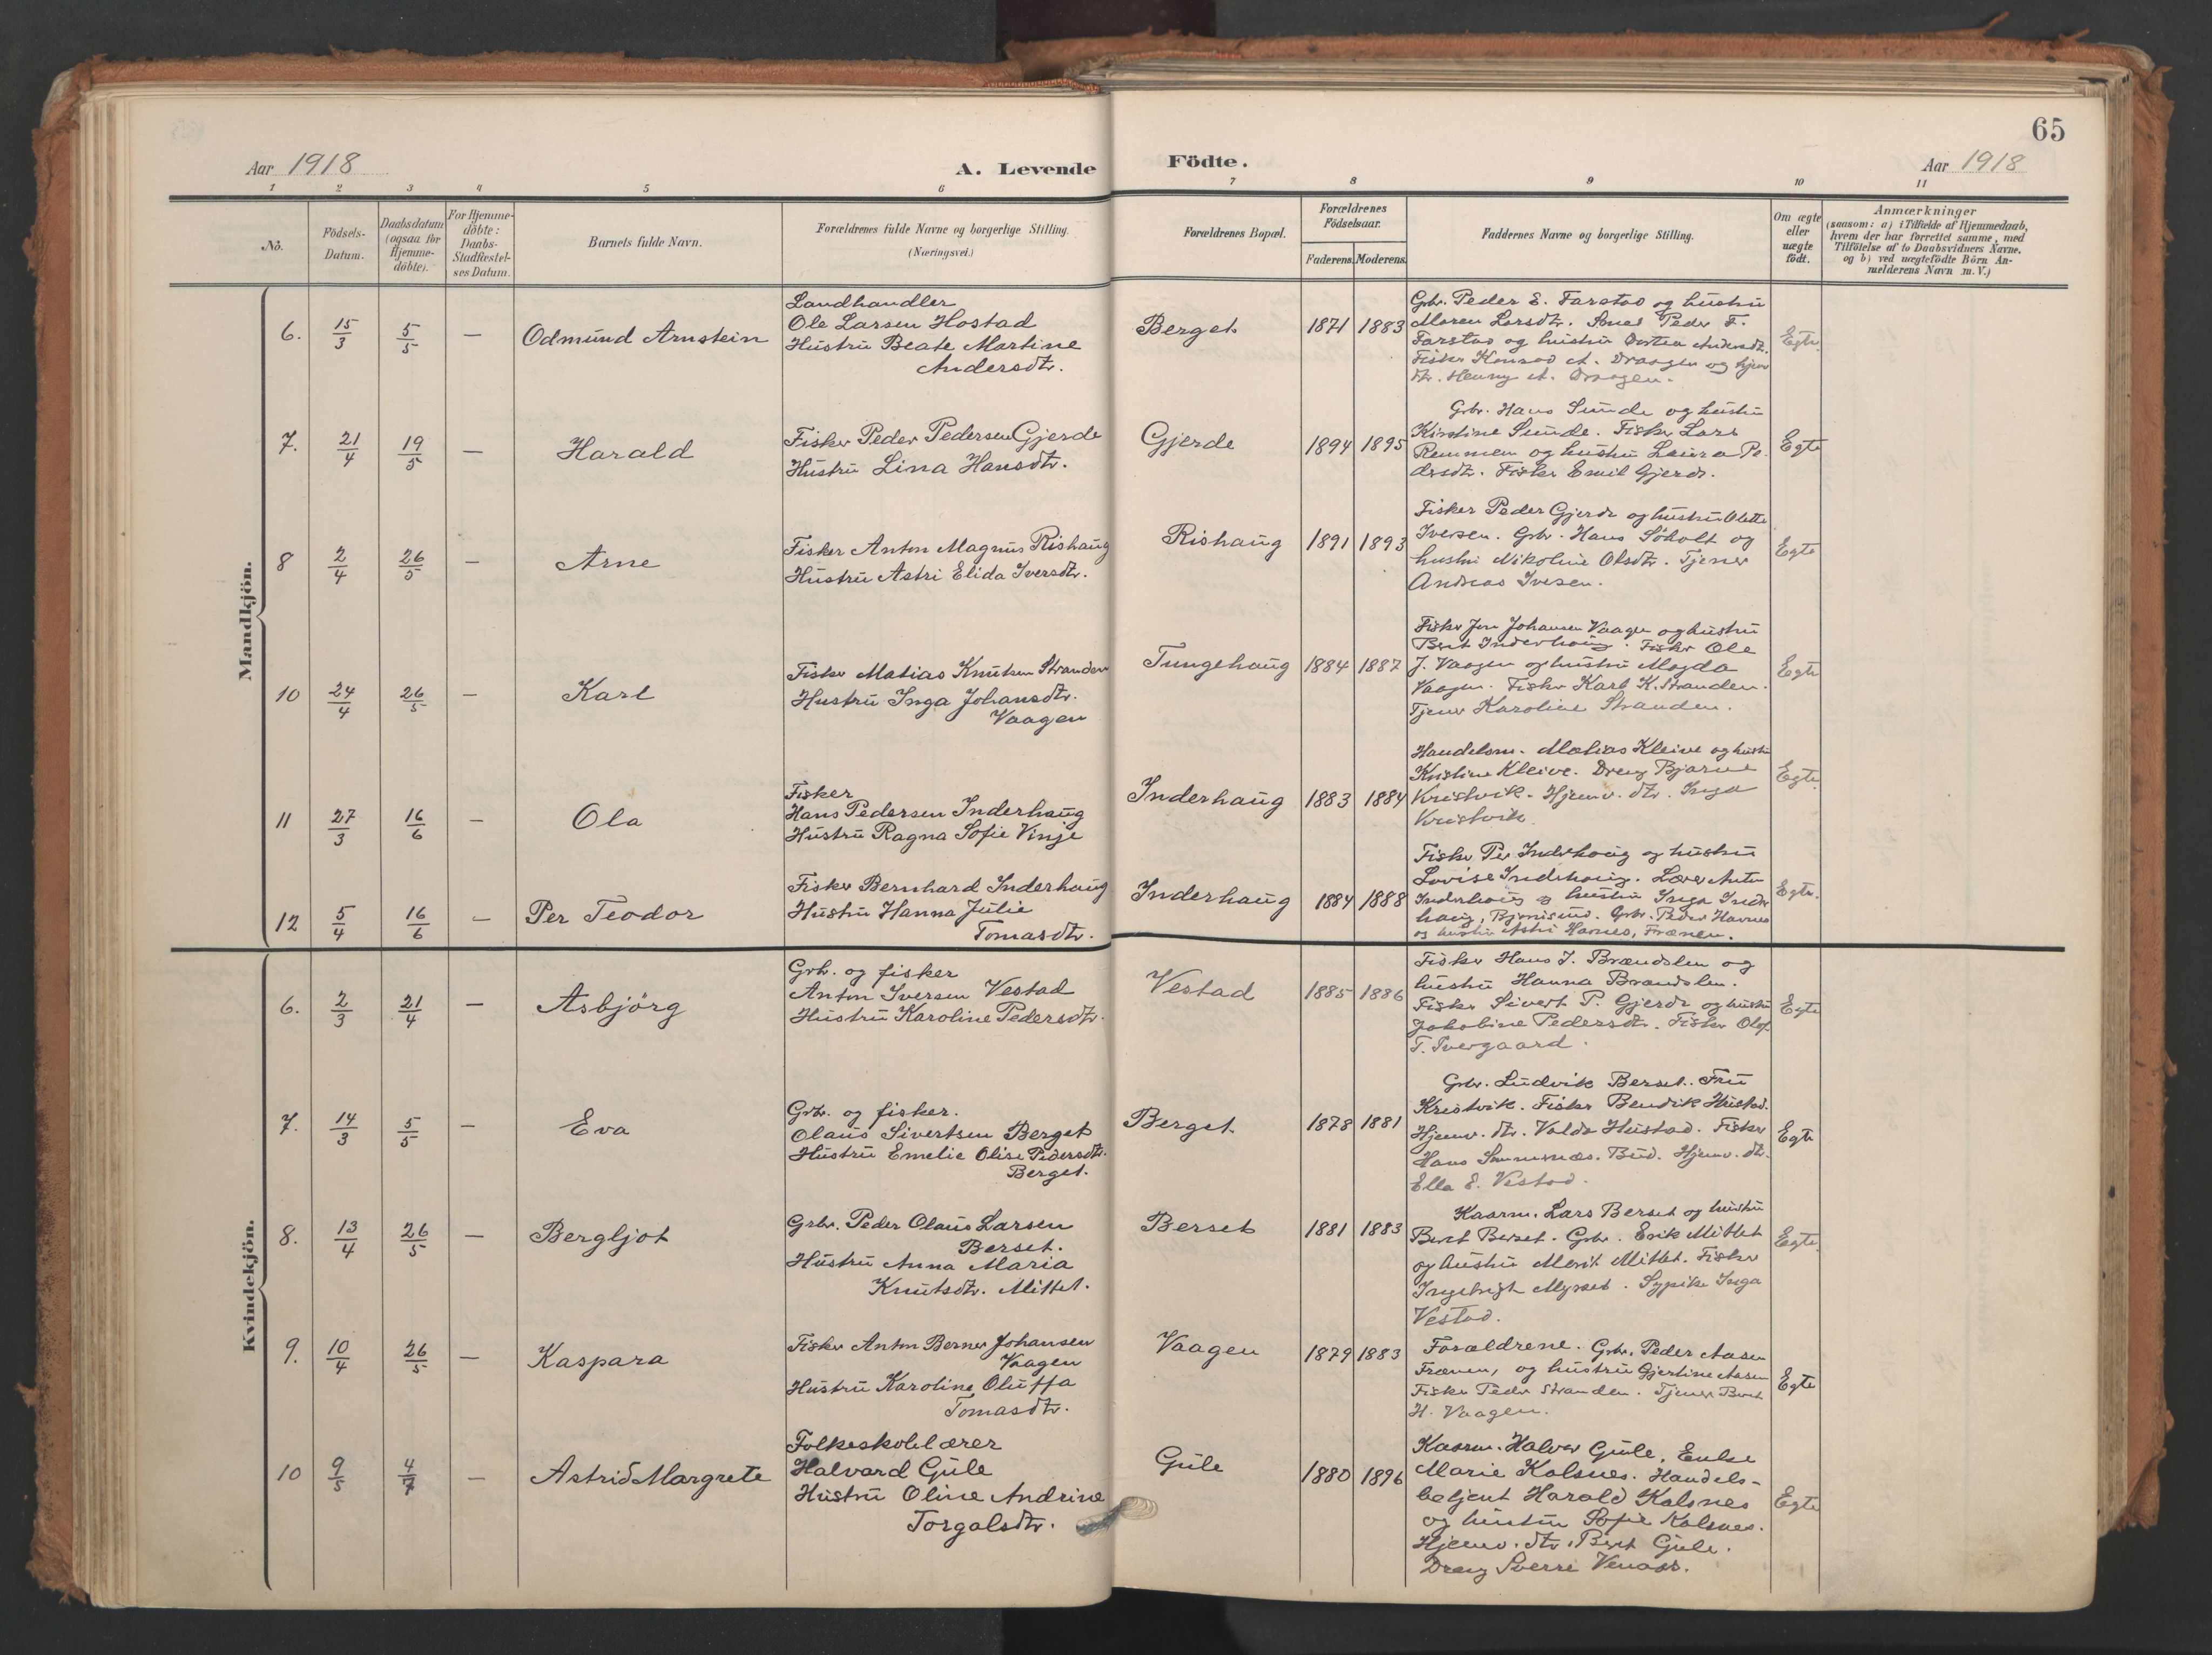 65
Aar 1918
A. Levende Födte.
Aar 1918
1 2 3 4 5 6 7 8 9 10 11
No.
Födsels-
Datum.
Daabsdatum
(ogsaa for
Hjemme-
döbte).
For Hjemme-
döbte:
Daabs-
Stadfæstel-
ses Datum.
Barnets fulde Navn.
Forældrenes fulde Navne og borgerlige Stilling.
(Næringsvei.)
Forældrenes Bopæl.
Forældrenes
Födselsaar.
Faderens. Moderens.
Faddernes Navne og borgerlige Stilling.
Om ægte
eller
uægte
født.
Anmærkninger
(saasom: a) i Tilfælde af Hjemmedaab,
hvem der har forrettet samme, med
Tilföielse af to Daabsvidners Navne.
og b) ved uægtefödte Börn An-
melderens Navn m. V.)
Mandkjön.
6. 15/3 5/5 — Odmund Arnstein
Landhandler
Ole Larsen Hostad
Hustru Beate Martine
Andersdtr.
Berget 1871 1883
Grbr. Peder E. Farstad og hustru
Maren Larsdtr. Peder F.
Farstad og hustru Dortea Andersdt.
Fisker Konrad A. Draagen og hjemv
dtr. Henny A. Draagen.
Egte.
7. 21/4 19/5 — Harald
Fisker Peder Pedersen Gjerde
Hustru Lina Hansdtr.
Gjerde 1894 1895
Grbr. Hans Sunde og hustru
Kirstine Sunde. Fisker Lars
Remmen og hustru Laura Pe-
dersdtr. Fisker Emil Gjerde.
Egte
8 2/4 26/5 — Arne
Fisker Anton Magnus Rishaug
Hustru Astri Elida Iversdtr.
Rishaug 1891 1893
Fisker Peder Gjerde og hustru Olette
Iversen. Grbr. Hans Söholt og
hustru Nikoline Olsdtr. Tjener
Andreas Iversen.
Egte
10 24/4 26/5 — Karl
Fisker Matias Knutsen Stranden
Hustru Inga Johansdtr.
Vaagen
Tungehaug 1884 1887
Fisker Jon Johansen Vaagen og hustru
Berit Inderhaug. Fisker Ole
J. Vaagen og hustru Magda
Vaagen. Fisker Karl K. Stranden.
Tjener Karoline Stranden.
Egte
11 27/3 16/6 — Ola
Fisker
Hans Pedersen Inderhaug
Hustru Ragna Sofie Vinje
Inderhaug 1883 1884
Handelsm. Matias Kleive og hustru
Kristine Kleive. Dreng Bjarne
Kristvik. Hjemv. dtr. Inga
Kristvik.
Egte.
12 5/4 16/6 — Per Teodor
Fisker Bernhard Inderhaug
Hustru Hanna Julie
Tomasdtr.
Inderhaug 1884 1888
Fisker Per Inderhaug og hustru
Lovise Inderhaug. Lærer Anton
Inderhaug og hustru Inga Inder
haug, Bjørnsund. Grbr. Peder Harnes
og hustru Astri Harnes, Frænen.
Egte.
Kvindekjön.
6. 2/3 21/4 — Asbjörg
Grbr. og fisker
Anton Iversen Vestad
Hustru Karoline Pedersdtr.
Vestad 1885 1886
Fisker Hans J. Brændslen og
hustru Hanna Brandslen.
Fisker Sivert P. Gjerde og hustru
Jakobine Pedersdtr. Fisker Olaf
T. Tvergaard.
Egte
7. 14/3 5/5 — Eva
Grbr. og fisker.
Olaus Sivertsen Berget
Hustru Emelie Olise Pedersdtr.
Berget.
Berget 1878 1881
Grbr. Ludvik Berset. Fru
Kristvik. Fisker Bendik Hustad.
Hjemv. dtr. Valda Hustad. Fisker
Hans Bud. Hjemv. dtr.
Ella E. Vestad.
Egte
8. 13/4 26/5 — Bergljot
Grbr. Peder Olaus Larsen
Berset.
Hustru Anna Maria
Knutsdtr. Mittet.
Berset 1881 1883
Kaarm. Lars Berset og hustru
Berit Berset. Grbr. Erik Mittet
og hustru Marit Mittet. Fisker
Ingebrigt Myrset. Sypike Inga
Vestad.
Egte.
9. 10/4 26/5 — Kaspara
Fisker Anton Berner Johansen
Vaagen
Hustru Karoline Oluffa
Tomasdtr.
Vaagen 1879 1883
Forældrene. Grbr. Peder Aasen
Frænen, og hustru Gjertine Aasen
Fisker Peder Stranden. Tjener Berit
H. Vaagen.
Egte
10 9/5 4/7 — Astrid Margrete
Folkeskolelærer
Halvard Gule
Hustru Oline Andrine
Torgalsdtr.
Gule 1880 1896
Kaarm. Halvor Gule. Enke
Marie Kalsnes. Handels-
betjent Harald Kalsnes
og hustru Sofie Kalsnes.
Hjemv. dtr. Berit Gule.
Dreng Sverre Venaas.
Egte